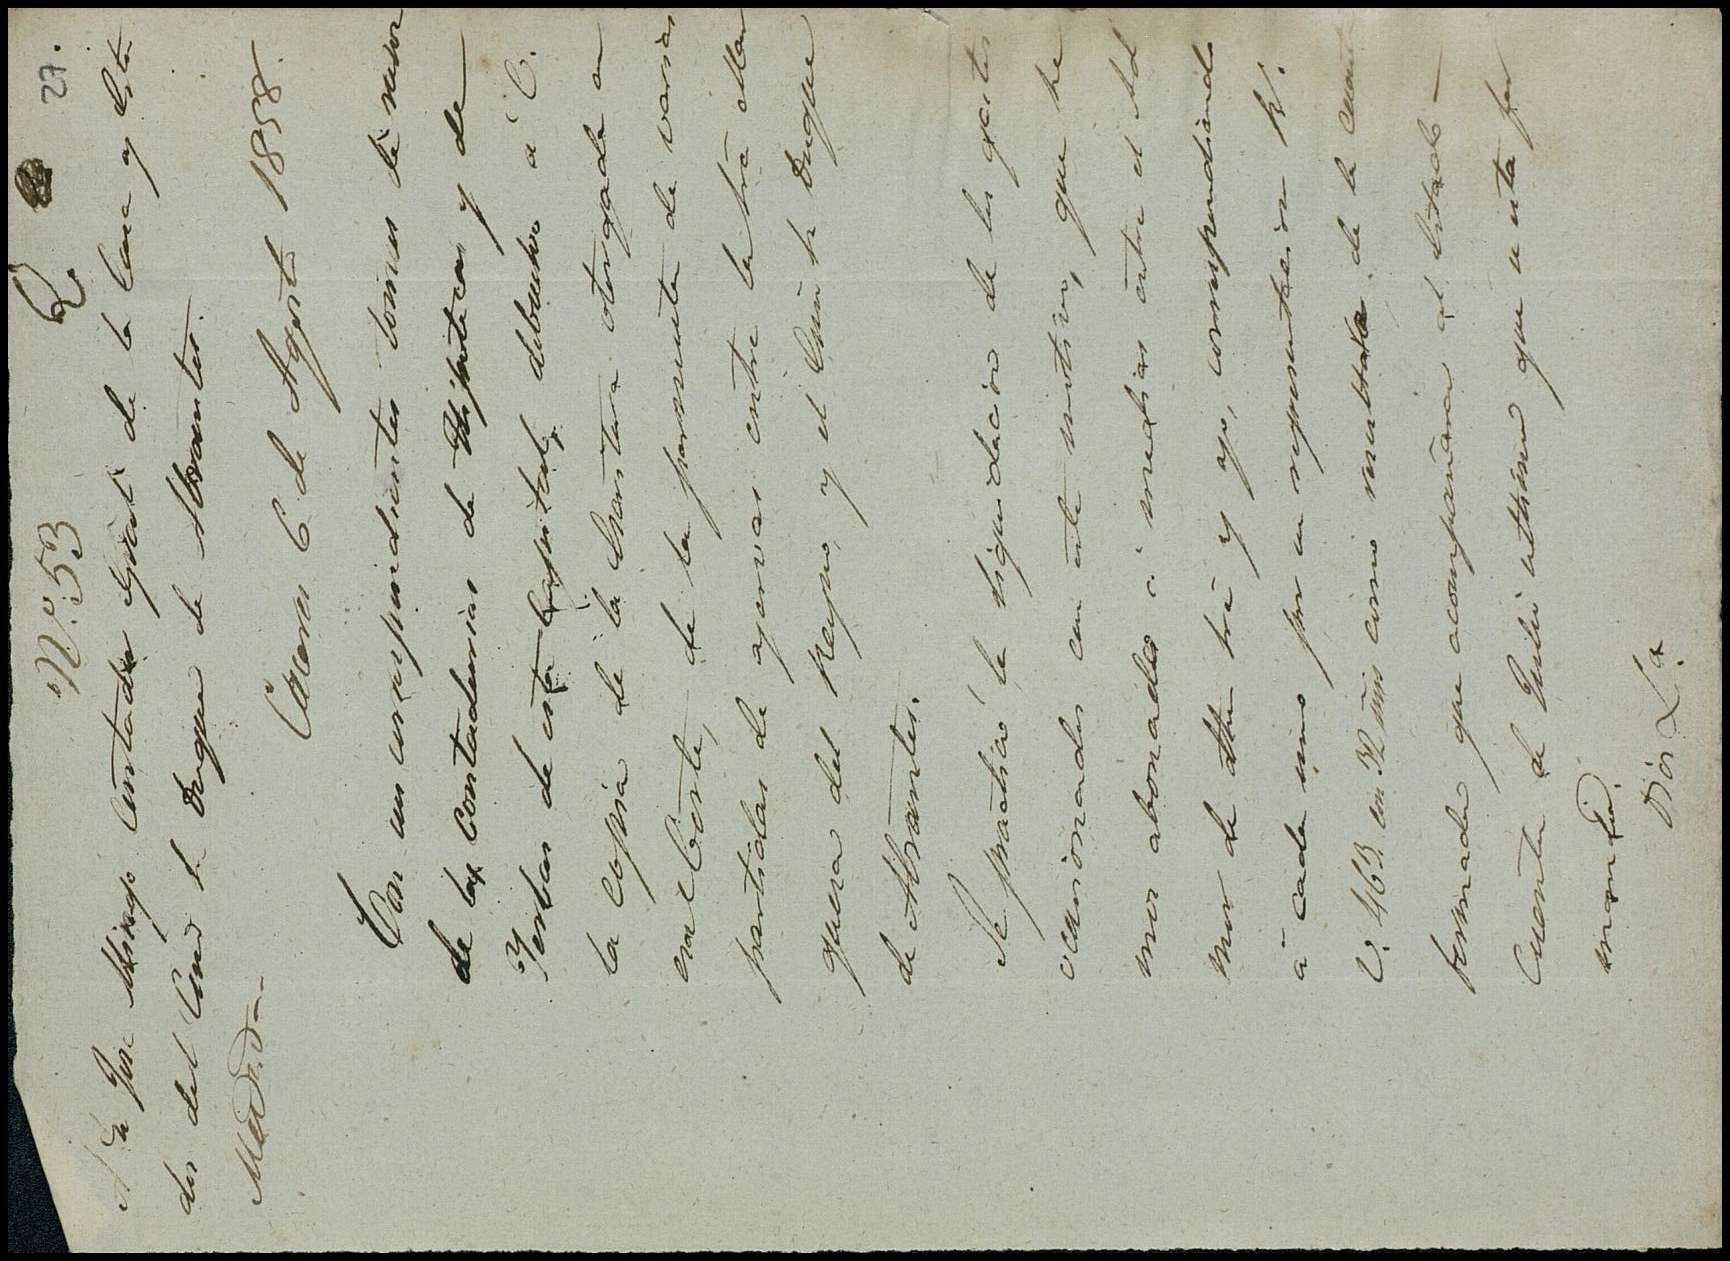 27.
N.º 53
A Dn José Mingo Contador Gral de la Casa y Esta
dos del Exmo Sr Duque de Abrantes.
Madrid.
Cáceres 6 de Agosto 1858.
Con sus correspondientes tomas de razon
de las Contadurias de Hipotecas y de
Yerbas de esta Capital, debuelvo á V.
la copia de la Escritura otorgada en
esa Corte, de la permuta de varias
partidas de yervas entre la Sra Mar
quesa del Reyno, y el Exmo Sr Duque
de Abrantes.
Se practicó la liquidacion de los gastos
ocasionados con este motivo, que he
mos abonados á medias entre el Ad
mor de dha Sra y yo, correspondiendo
á cada uno por su representacion Rs.
V. 463 con 32 mrs como resulta de la cuenta
formada que acompañara al Estado
Cuenta de Julio ultimo que á esta fha
mando.
Dios &.a